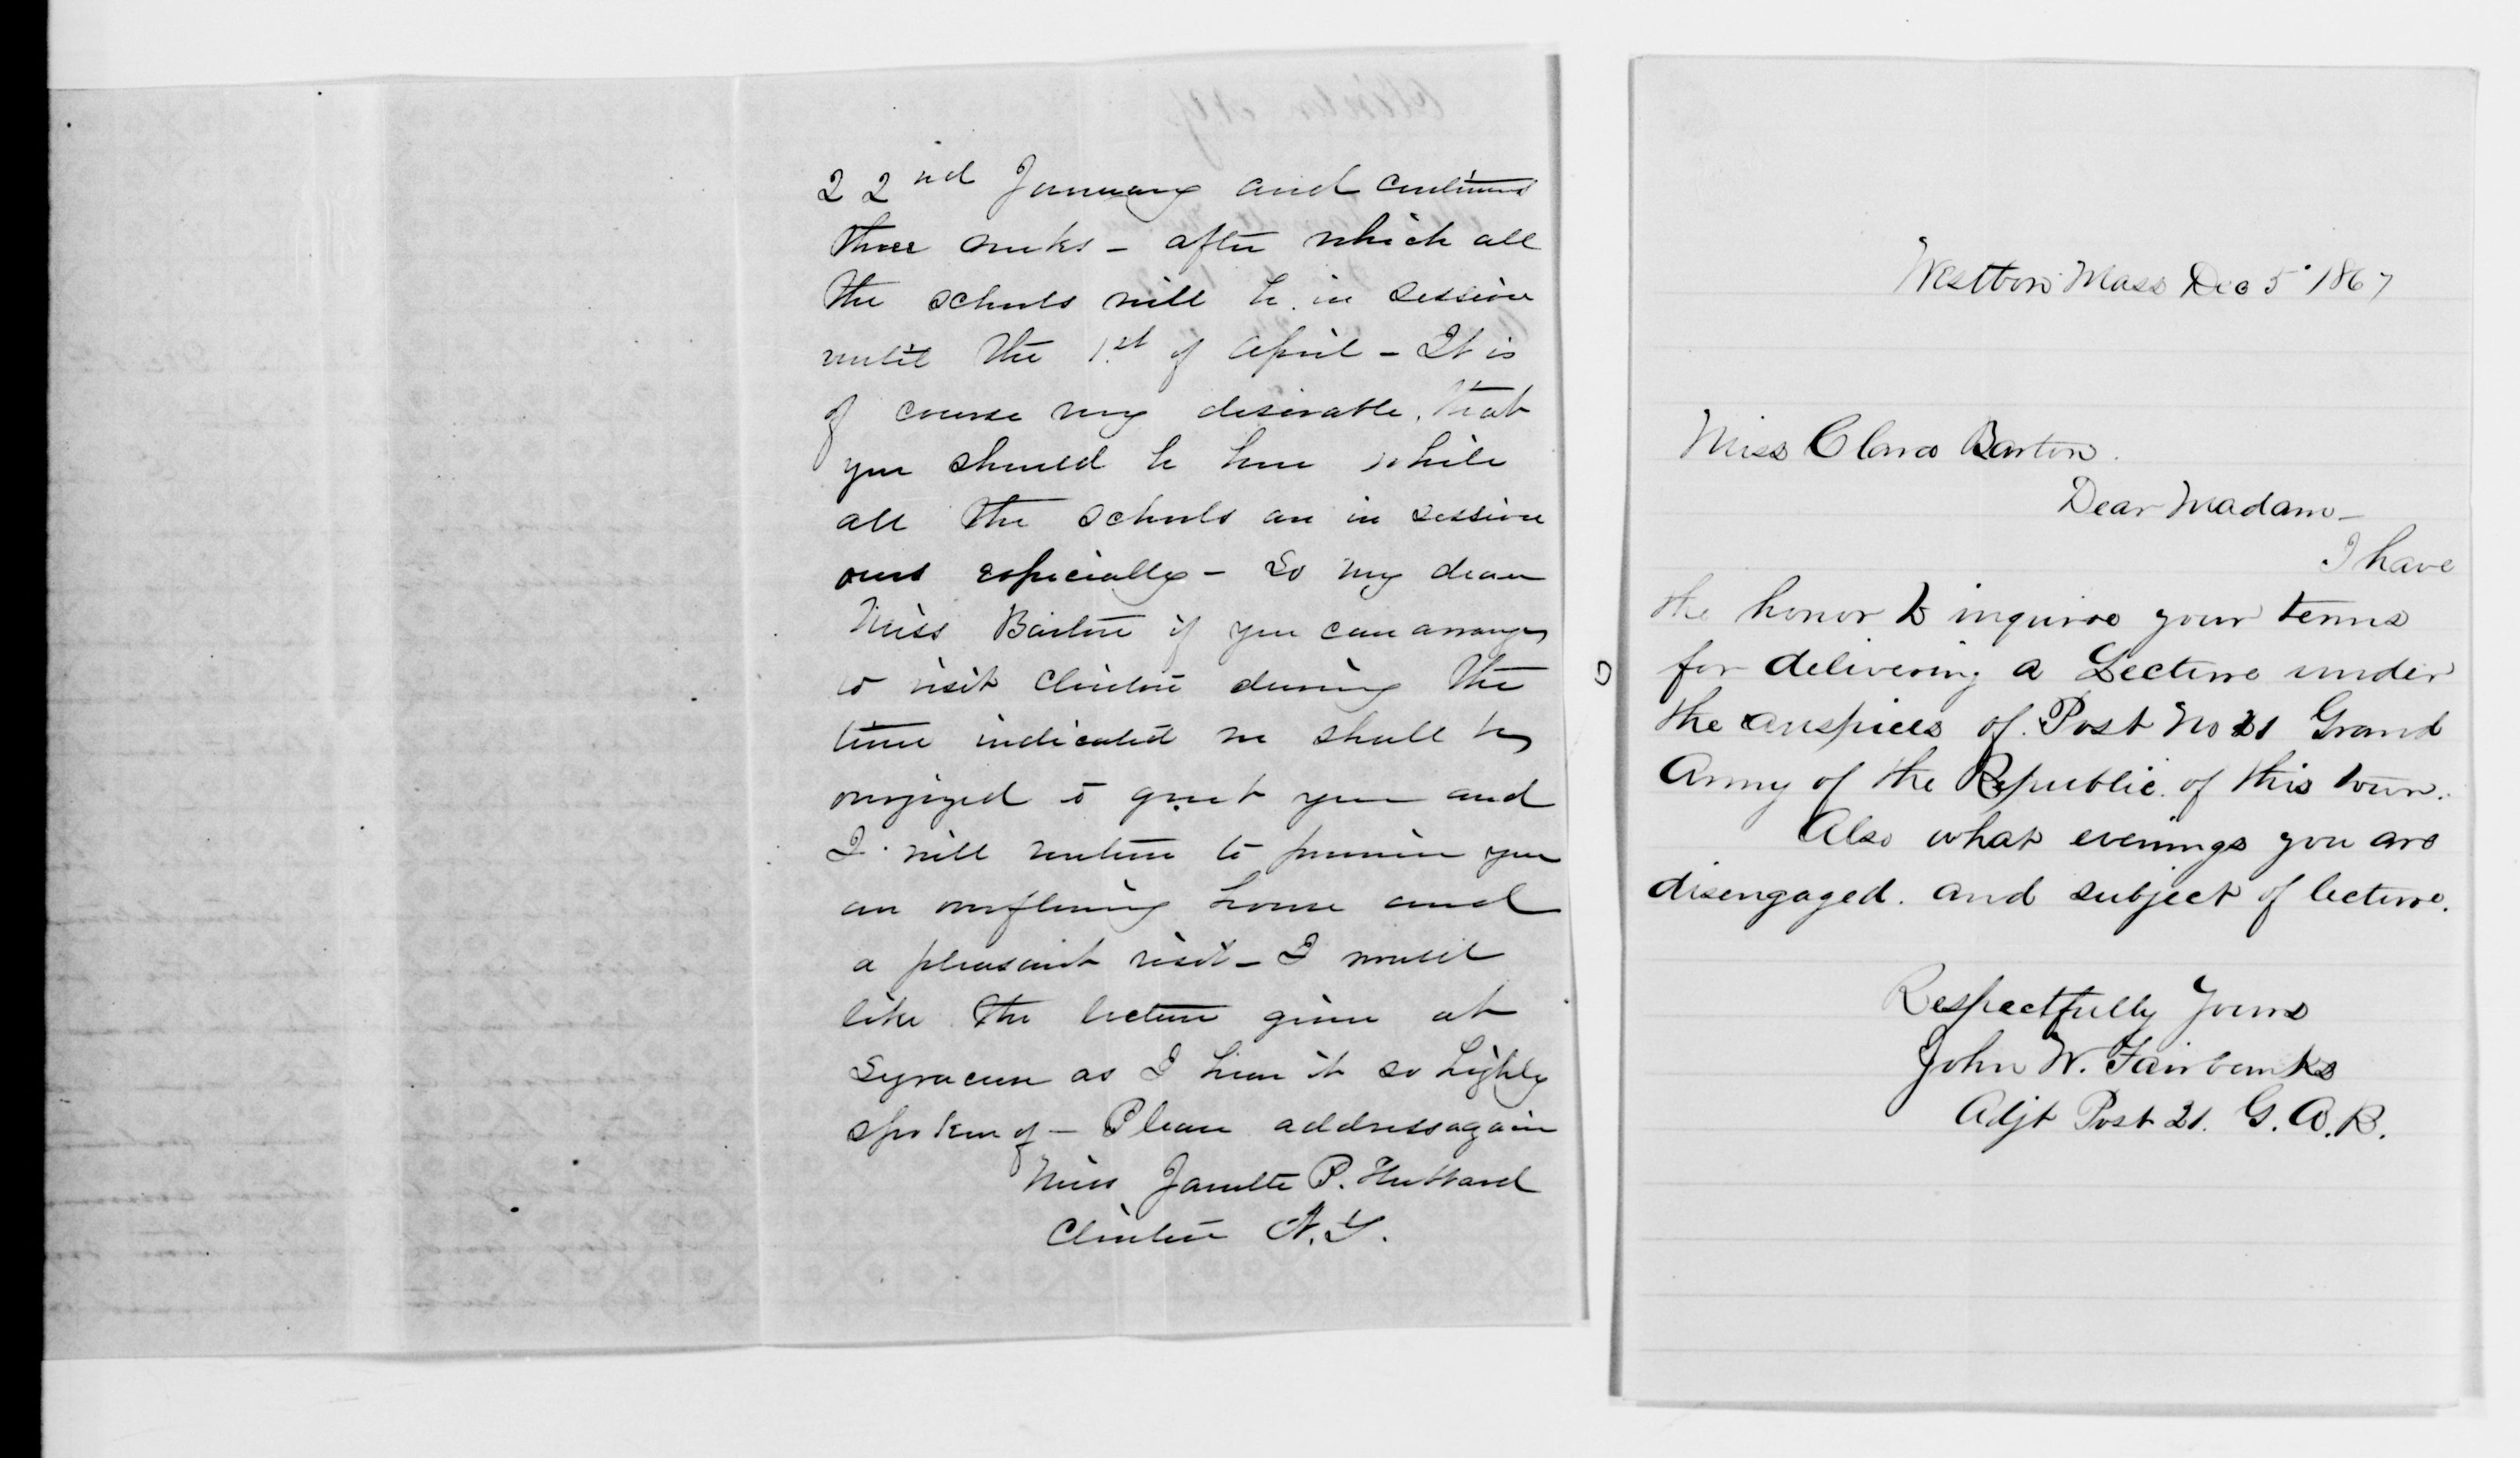 22nd January and continues
three weeks - after which all
the schools will be in session
until the 1st of April - It is
of course very desirable, that
you should be here while
all the schools are in session
ours especially - So my dear
Miss Barton if you can arrange
to visit Clinton during the
time indicated we shall be
overjoyed to greet you and
I will venture to promise you
an overflowing house and
a pleasant visit - I would
like the lecture given at
Syracuse as I hear it so highly
spoken of - Please address again
Miss Janette P. Hubbard
Clinton N.Y.
Westboro Mass Dec 5 1867
Miss Clara Barton.
Dear Madam -
I have
the honor to inquire your terms
for delivering a Lecture under
the auspices of Post No 21 Grand
Army of the Republic of this town.
Also what evenings you are
disengaged. and subject of lecture.
Respectfully Yours
John W. Fairbanks
Adjt Post 21. G. A. R.